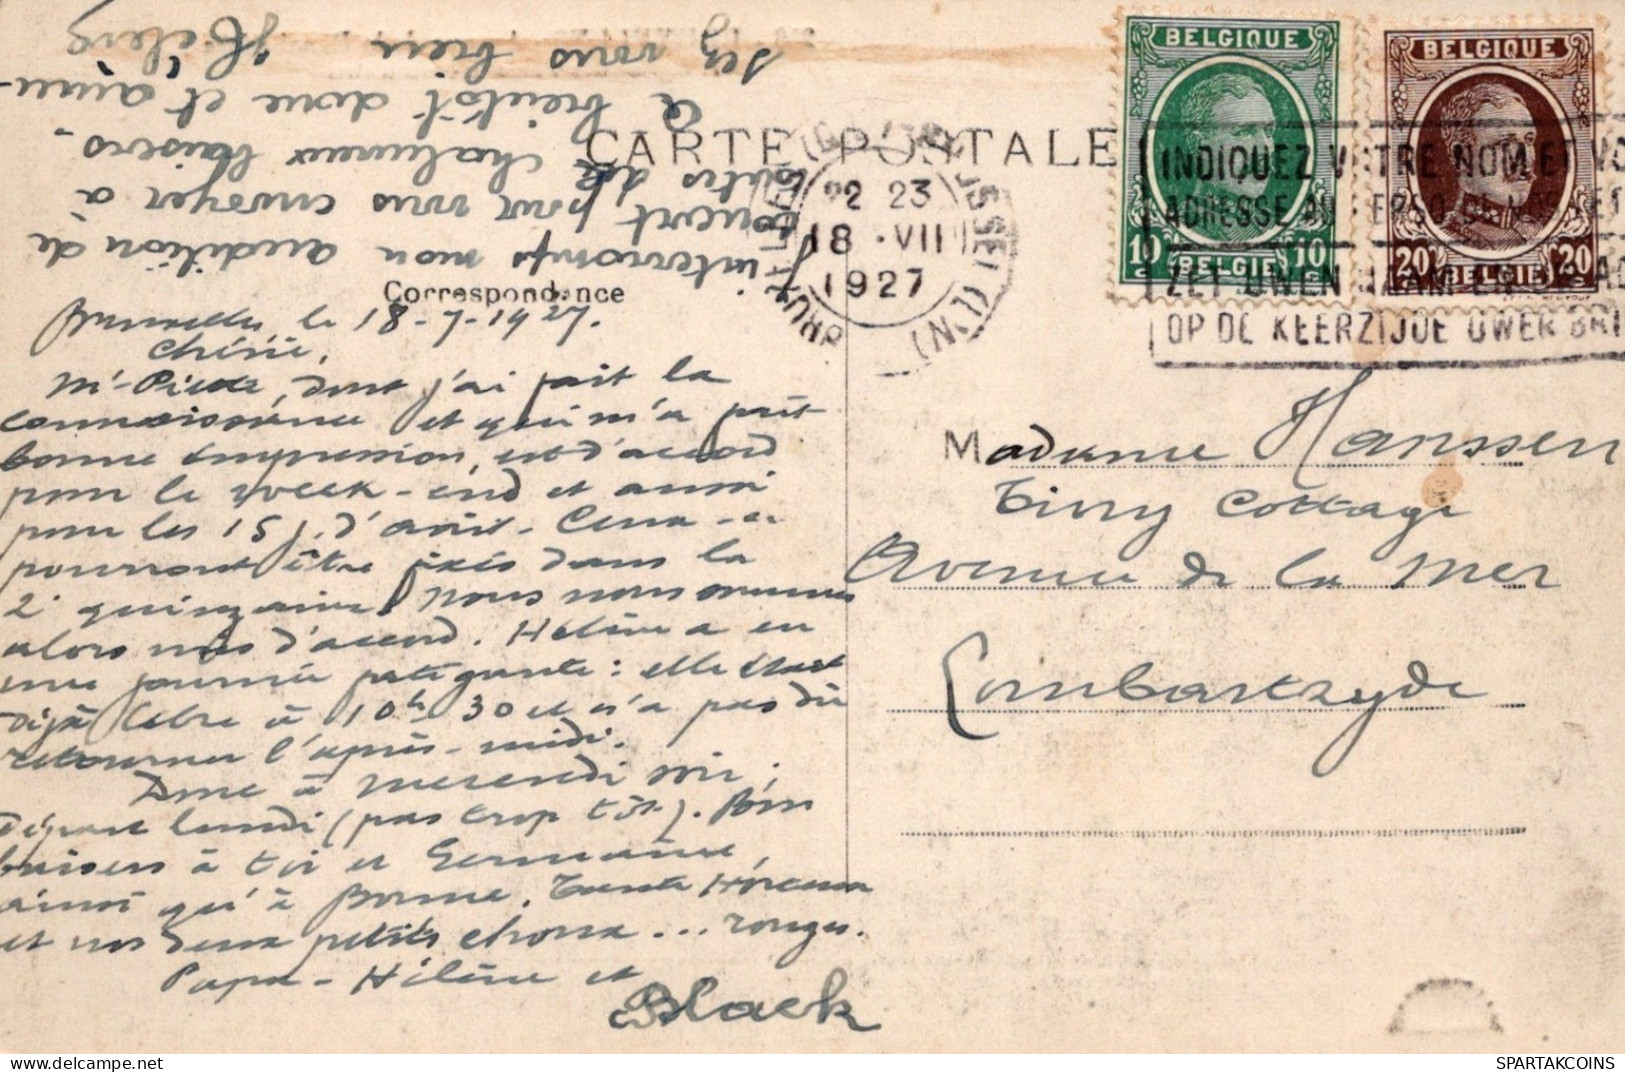 BELGIQUE BELGIQUE
10 BELGIË 10 20 BELGIË 20
CARTE POSTALE
22 23
18 · VII
1927
INDIQUEZ VOTRE NOM ET VO
ADRESSE AU VERSO
ZET UWEN NAAM EN
OP DE KEERZIJDE UWER BRI
Correspondance
Bruxelles, le 18-7-1927.
Chérie,
M. dont j'ai fait la
connaissance et qui m'a fait
bonne impression, est d'accord
pour le week-end et aussi
pour les 15 j. d'août. Ceux-ci
pourront être fixés dans la
2e quinzaine. Nous nous sommes
alors mis d'accord. Hélène a eu
une journée fatigante : elle était
déjà libre à 10h 30 et n'a pas dû
retourner l'après-midi.
Donc à mercredi soir ;
départ lundi (pas trop tôt). Bons
baisers à toi et Germaine,
ainsi qu'à Bonne. Tante
et nos deux petits choux ... rouges.
Papa - Hélène et
Black
J'interromps mon audition de
concert pour vous envoyer à
toutes de chaleureux baisers.
A bientôt donc et amu-
sez vous bien Hélène
Madame Hanssen
Tiny Cottage
Avenue de la Mer
Lombartzyde
SPARTAKCOINS